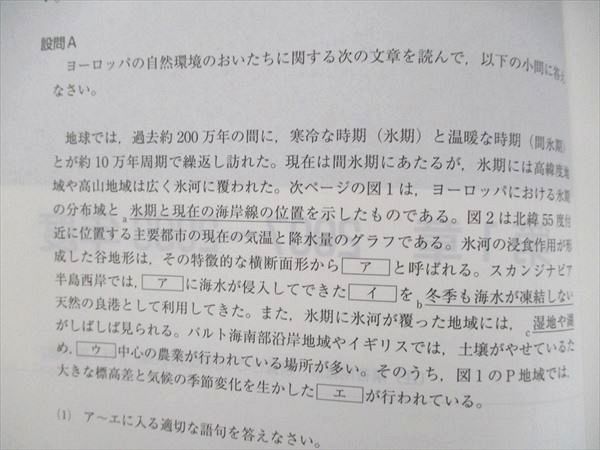 設問A
ヨーロッパの自然環境のおいたちに関する次の文章を読んで,以下の小問に答え
なさい。
地球では,過去約200万年の間に,寒冷な時期(氷期)と温暖な時期(間氷期)
とが約10万年周期で繰返し訪れた。現在は間氷期にあたるが,氷期には高緯度地
域や高山地域は広く氷河に覆われた。次ページの図1は,ヨーロッパにおける氷期
の分布域とa氷期と現在の海岸線の位置を示したものである。図2は北緯55度付
近に位置する主要都市の現在の気温と降水量のグラフである。氷河の浸食作用が形
成した谷地形は,その特徴的な横断面形からアと呼ばれる。スカンジナビア
半島西岸では,アに海水が侵入してできたイをb冬季も海水が凍結しない
天然の良港として利用してきた。また,氷期に氷河が覆った地域には,c湿地や湖
がしばしば見られる。バルト海南部沿岸地域やイギリスでは,土壌がやせているた
め,ウ中心の農業が行われている場所が多い。そのうち,図1のP地域では,
大きな標高差と気候の季節変化を生かしたエが行われている。
(1) ア〜エに入る適切な語句を答えなさい。